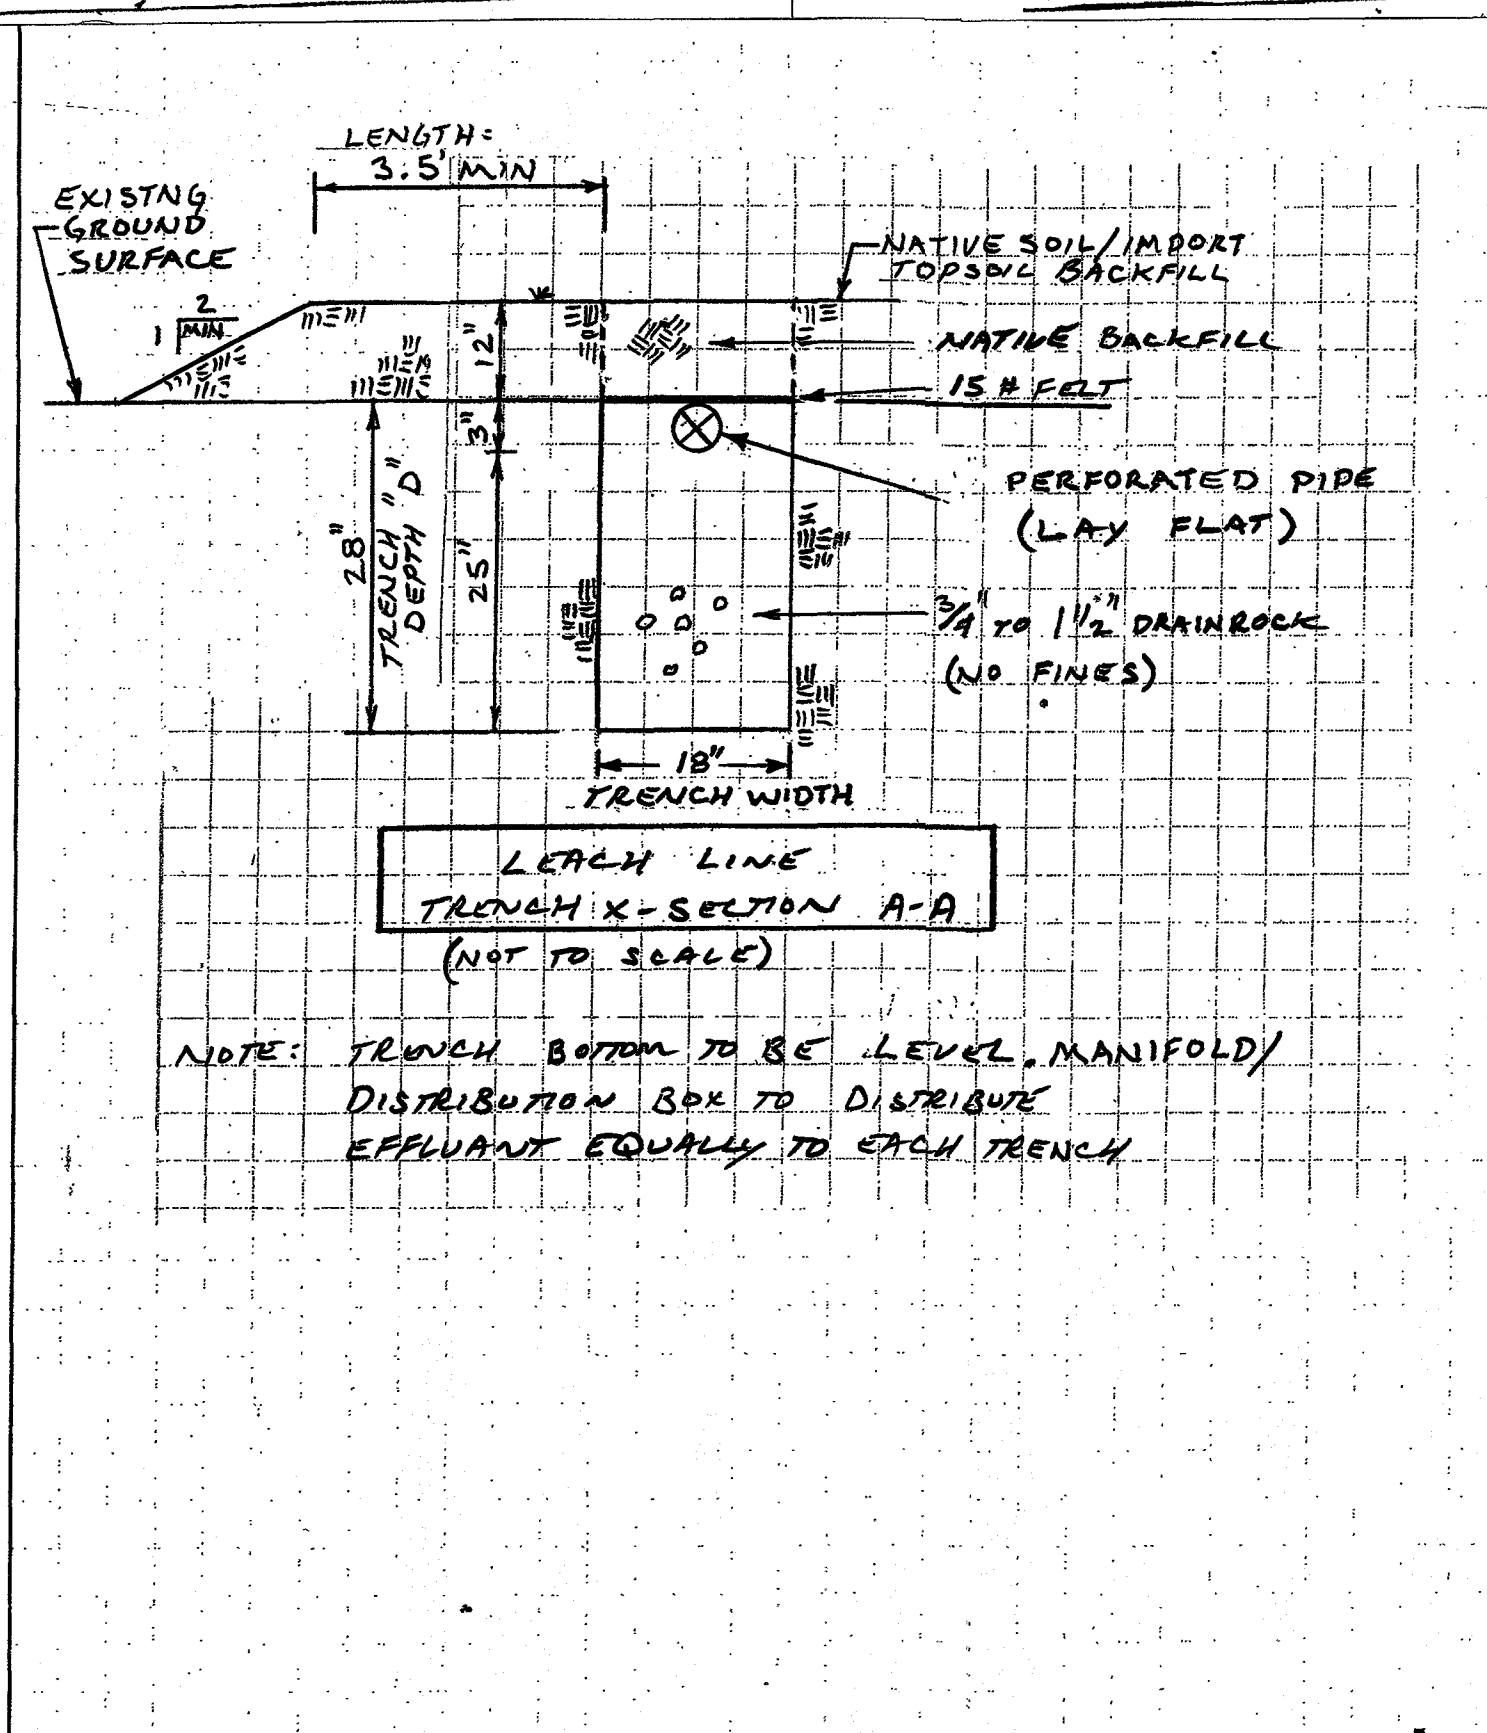 LENGTH=
3.5' MIN
EXISTNG
GROUND
SURFACE
NATIVE SOIL/IMPORT
TOPSOIL BACKFILL
2
1 MIN
12"
NATIVE BACKFILL
15 # FELT
3"
PERFORATED PIPE
(LAY FLAT)
28"
TRENCH "D"
DEPTH
25"
3/4" TO 1 1/2" DRAINROCK
(NO FINES)
18"
TRENCH WIDTH
LEACH LINE
TRENCH X-SECTION A-A
(NOT TO SCALE)
NOTE: TRENCH BOTTOM TO BE LEVEL. MANIFOLD/
DISTRIBUTION BOX TO DISTRIBUTE
EFFLUANT EQUALLY TO EACH TRENCH